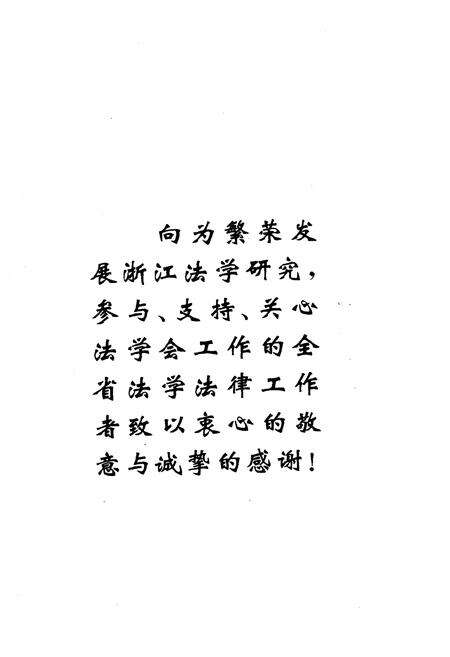 向为繁荣发
展浙江法学研究，
参与、支持、关心
法学会工作的全
省法学法律工作
者致以衷心的敬
意与诚挚的感谢！